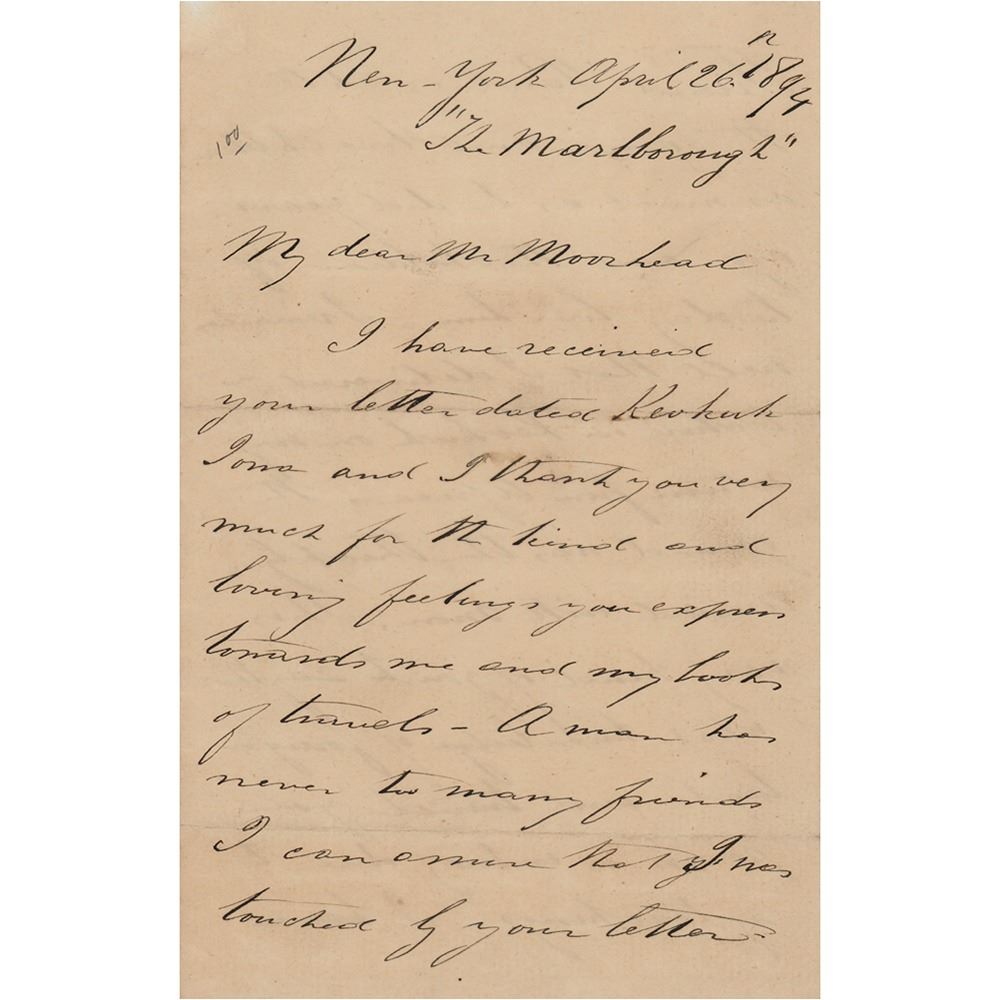 New-York April 26th 1894
"The Marlborough"
1 00
My dear Mr Moorhead
I have received
your letter dated Keokuk
Iowa and I thank you very
much for the kind and
loving feelings you express
towards me and my books
of travels – A man has
never too many friends
I can assure that I was
touched by your letter –